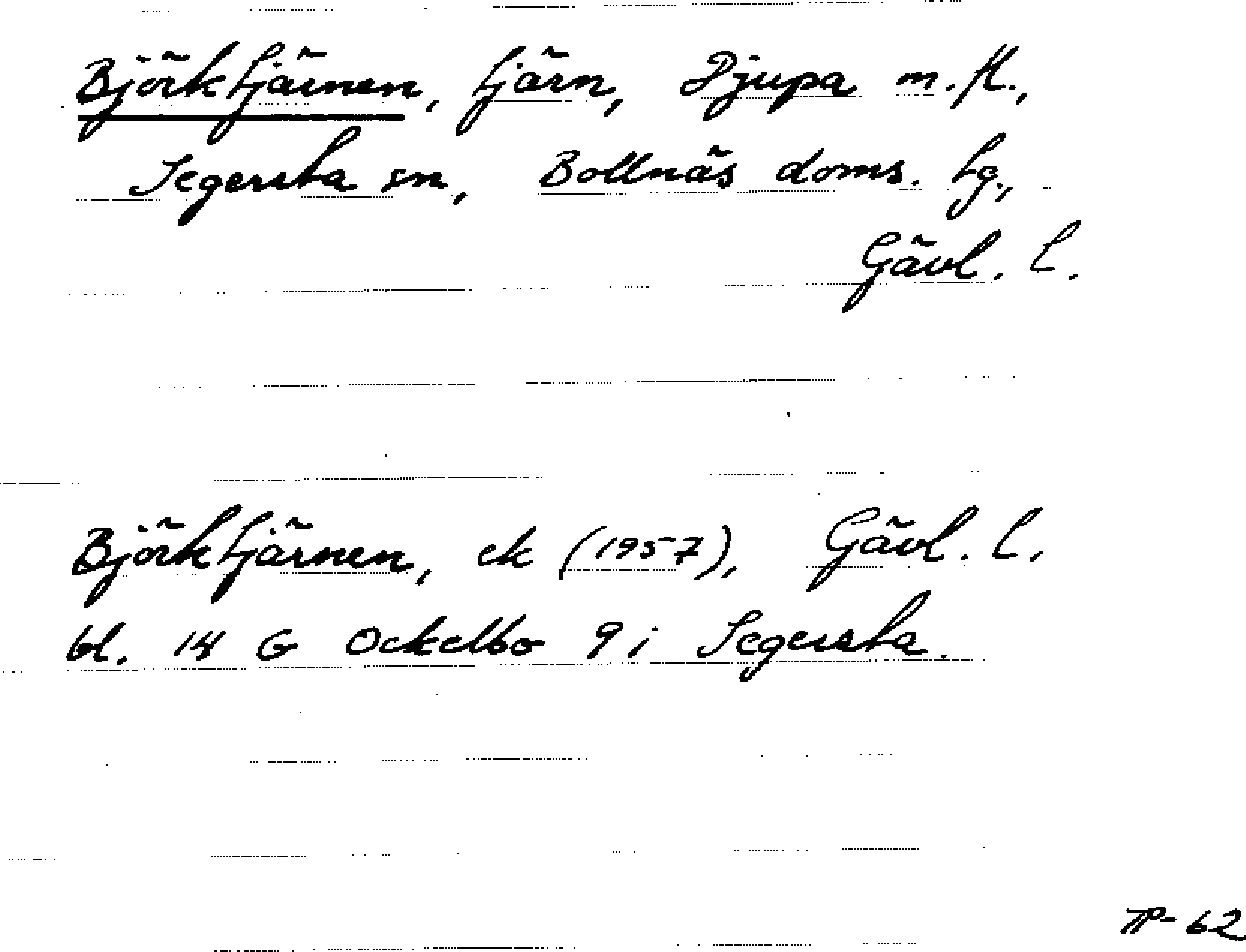 Björktjärnen, tjärn, Djupa m.fl.,
Segersta sn, Bollnäs doms. tg.,
Gävl. l.
Björktjärnen, ek (1957), Gävl. l.
bl. 14 G Ockelbo 9 i Segersta.
TP-62